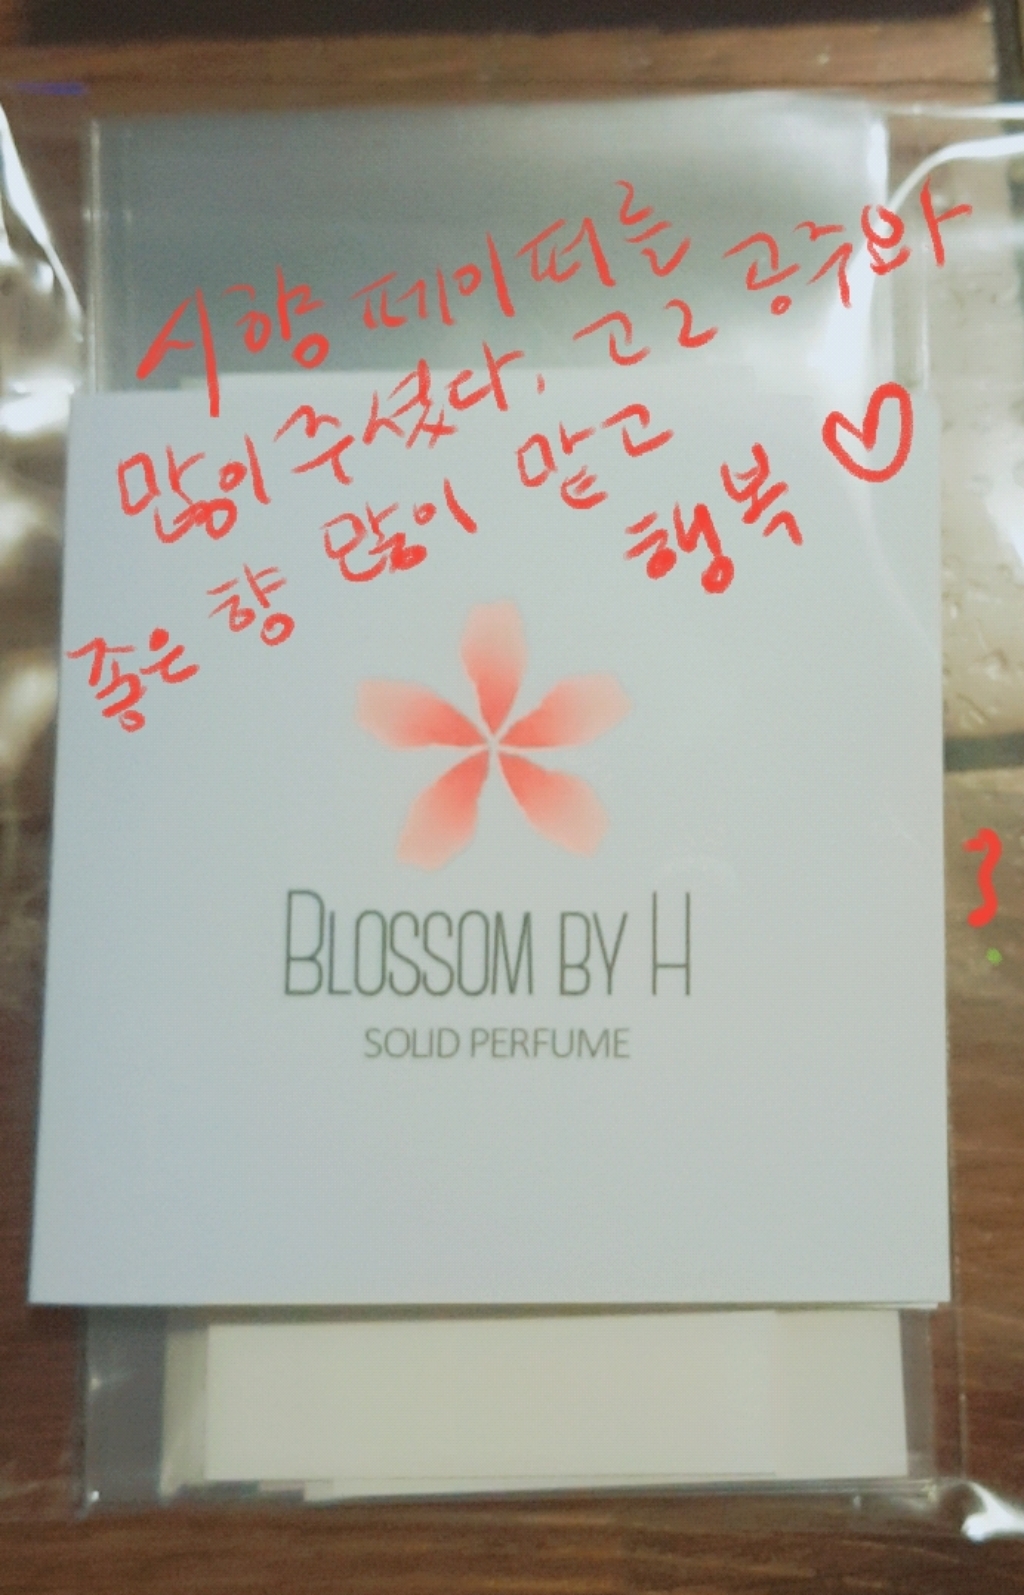 시향 페이퍼를
많이 주셨다. 고2 공주와
좋은 향 많이 맡고
행복♡
BLOSSOM BY H
SOLID PERFUME